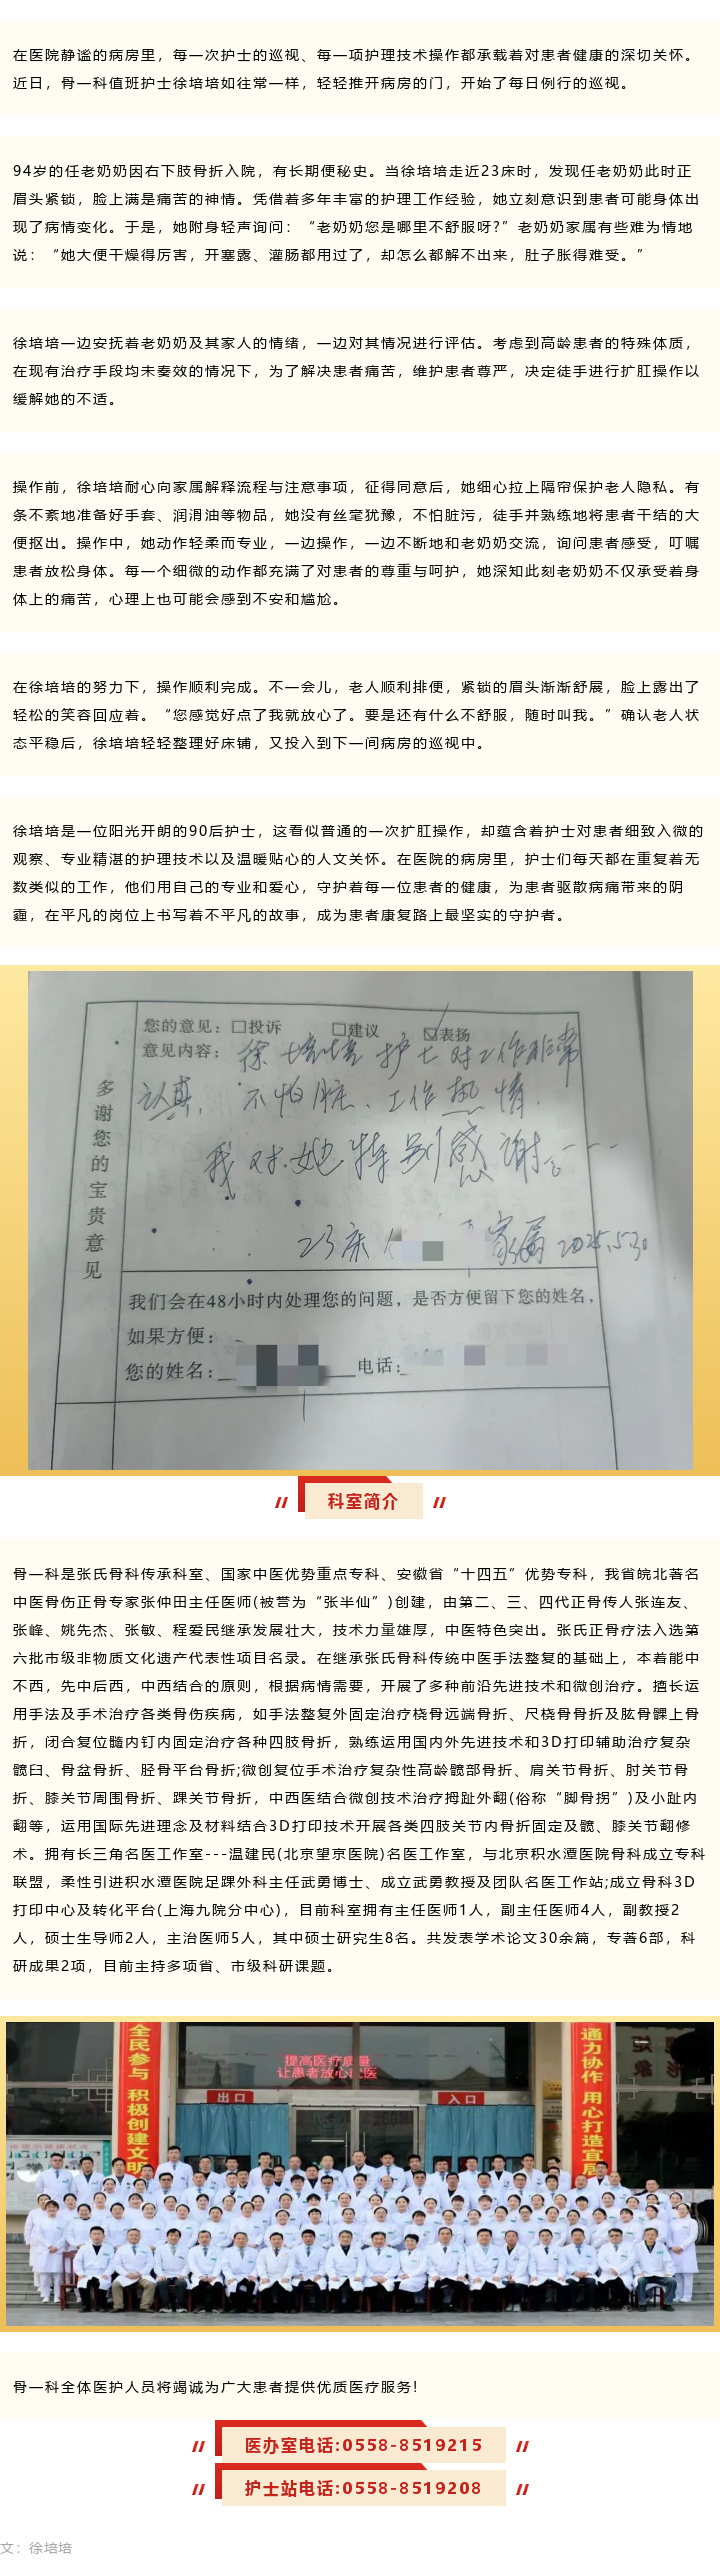 在医院静谧的病房里，每一次护士的巡视、每一项护理技术操作都承载着对患者健康的深切关怀。
近日，骨一科值班护士徐培培如往常一样，轻轻推开病房的门，开始了每日例行的巡视。
94岁的任老奶奶因右下肢骨折入院，有长期便秘史。当徐培培走近23床时，发现任老奶奶此时正
眉头紧锁，脸上满是痛苦的神情。凭借着多年丰富的护理工作经验，她立刻意识到患者可能身体出
现了病情变化。于是，她附身轻声询问：“老奶奶您是哪里不舒服呀?”老奶奶家属有些难为情地
说：“她大便干燥得厉害，开塞露、灌肠都用过了，却怎么都解不出来，肚子胀得难受。”
徐培培一边安抚着老奶奶及其家人的情绪，一边对其情况进行评估。考虑到高龄患者的特殊体质，
在现有治疗手段均未奏效的情况下，为了解决患者痛苦，维护患者尊严，决定徒手进行扩肛操作以
缓解她的不适。
操作前，徐培培耐心向家属解释流程与注意事项，征得同意后，她细心拉上隔帘保护老人隐私。有
条不紊地准备好手套、润滑油等物品，她没有丝毫犹豫，不怕脏污，徒手并熟练地将患者干结的大
便抠出。操作中，她动作轻柔而专业，一边操作，一边不断地和老奶奶交流，询问患者感受，叮嘱
患者放松身体。每一个细微的动作都充满了对患者的尊重与呵护，她深知此刻老奶奶不仅承受着身
体上的痛苦，心理上也可能会感到不安和尴尬。
在徐培培的努力下，操作顺利完成。不一会儿，老人顺利排便，紧锁的眉头渐渐舒展，脸上露出了
轻松的笑容回应着。“您感觉好点了我就放心了。要是还有什么不舒服，随时叫我。”确认老人状
态平稳后，徐培培轻轻整理好床铺，又投入到下一间病房的巡视中。
徐培培是一位阳光开朗的90后护士，这看似普通的一次扩肛操作，却蕴含着护士对患者细致入微的
观察、专业精湛的护理技术以及温暖贴心的人文关怀。在医院的病房里，护士们每天都在重复着无
数类似的工作，他们用自己的专业和爱心，守护着每一位患者的健康，为患者驱散病痛带来的阴
霾，在平凡的岗位上书写着不平凡的故事，成为患者康复路上最坚实的守护者。
多谢您的宝贵意见
您的意见：□投诉 □建议 ☑表扬
意见内容：徐培培护士对工作非常
认真，不怕脏、工作热情，
我对她特别感谢。
23床 家属 2025.5.30
我们会在48小时内处理您的问题，是否方便留下您的姓名，
如果方便：
您的姓名： 电话：
科室简介
骨一科是张氏骨科传承科室、国家中医优势重点专科、安徽省“十四五”优势专科，我省皖北著名
中医骨伤正骨专家张仲田主任医师(被誉为“张半仙”)创建，由第二、三、四代正骨传人张连友、
张峰、姚先杰、张敏、程爱民继承发展壮大，技术力量雄厚，中医特色突出。张氏正骨疗法入选第
六批市级非物质文化遗产代表性项目名录。在继承张氏骨科传统中医手法整复的基础上，本着能中
不西，先中后西，中西结合的原则，根据病情需要，开展了多种前沿先进技术和微创治疗。擅长运
用手法及手术治疗各类骨伤疾病，如手法整复外固定治疗桡骨远端骨折、尺桡骨骨折及肱骨髁上骨
折，闭合复位髓内钉内固定治疗各种四肢骨折，熟练运用国内外先进技术和3D打印辅助治疗复杂
髋臼、骨盆骨折、胫骨平台骨折;微创复位手术治疗复杂性高龄髋部骨折、肩关节骨折、肘关节骨
折、膝关节周围骨折、踝关节骨折，中西医结合微创技术治疗拇趾外翻(俗称“脚骨拐”)及小趾内
翻等，运用国际先进理念及材料结合3D打印技术开展各类四肢关节内骨折固定及髋、膝关节翻修
术。拥有长三角名医工作室---温建民(北京望京医院)名医工作室，与北京积水潭医院骨科成立专科
联盟，柔性引进积水潭医院足踝外科主任武勇博士、成立武勇教授及团队名医工作站;成立骨科3D
打印中心及转化平台(上海九院分中心)，目前科室拥有主任医师1人，副主任医师4人，副教授2
人，硕士生导师2人，主治医师5人，其中硕士研究生8名。共发表学术论文30余篇，专著6部，科
研成果2项，目前主持多项省、市级科研课题。
全民参与 积极创建文明
提高医疗质量
让患者放心就医
出口
入口
通力协作 用心打造宜居
骨一科全体医护人员将竭诚为广大患者提供优质医疗服务!
医办室电话:0558-8519215
护士站电话:0558-8519208
文：徐培培